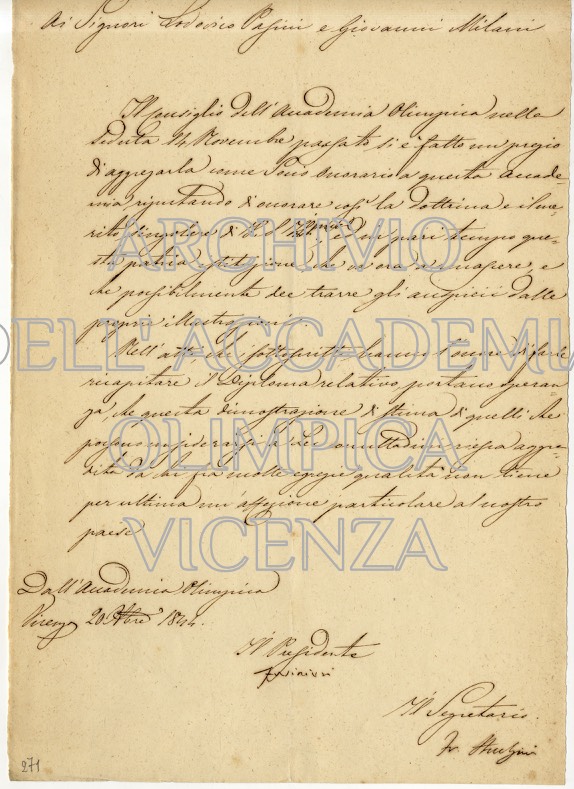 Ai Signori Lodovico Pasini e Giovanni Milani
Il Consiglio dell'Accademia Olimpica nella
Seduta 14 Novembre passato si è fatto un pregio
di aggregarla come Socio onorario a questa Accade-
mia riputando di onorare così la dottrina e il me-
rito singolare di V. S. ed in pari tempo que-
sta patria istituzione, che or ora a nascere, e
che possibilmente dee trarre gli auspicii dalle
proprie illustrazioni.
Nell'atto che i sottoscritti hanno l'onore di farle
ricapitare il Diploma relativo, portano speran-
za, che questa dimostrazione di stima di quelli che
possono considerarsi a Lei concittadini riesca aggra-
dita da chi fra molte egregie qualità non tiene
per ultima un'affezione particolare al nostro
paese
Dall'Accademia Olimpica
20 1844.
Il Presidente
Il Segretario
271
ARCHIVIO
DELL' ACCADEMI
OLIMPICA
VICENZA